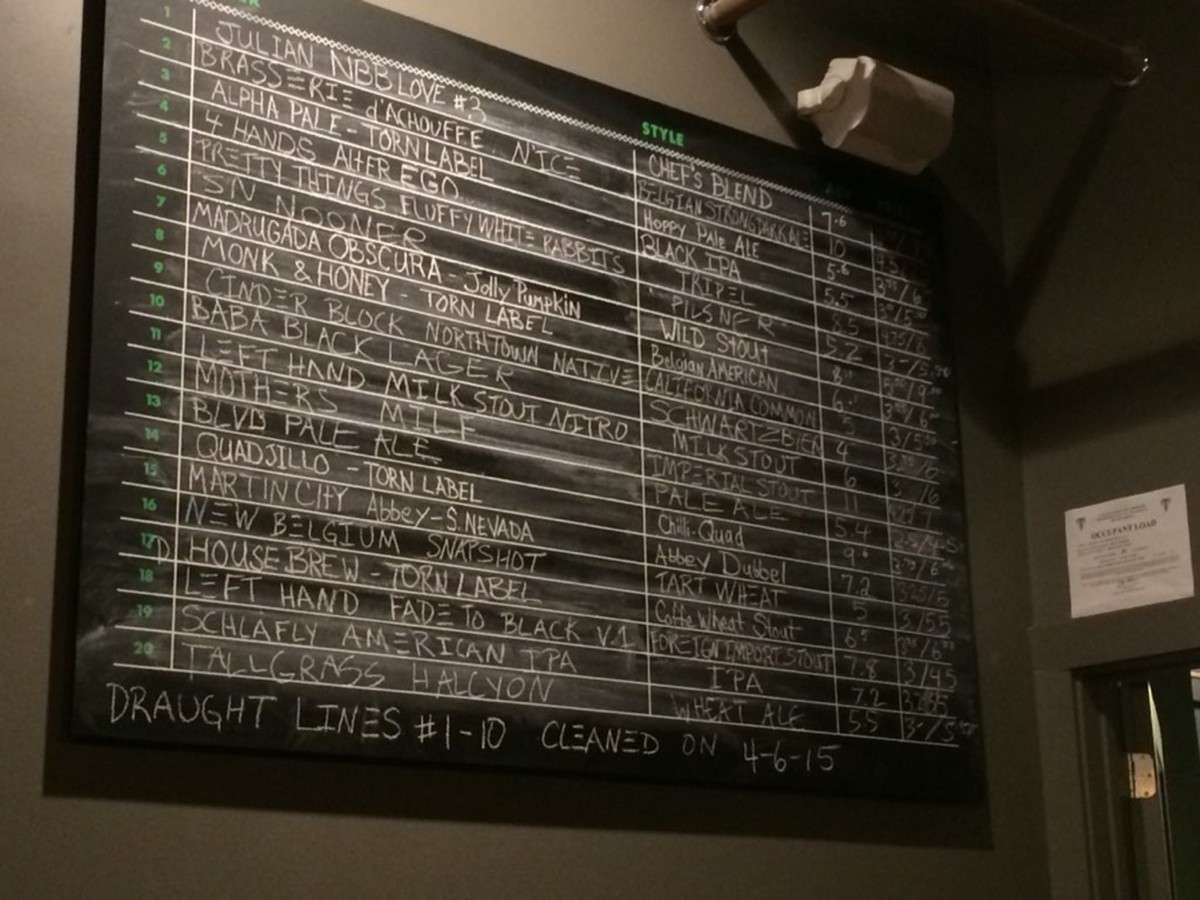 STYLE
1 JULIAN NBB LOVE #3 CHEF'S BLEND 7.6
2 BRASSERIE d'ACHOUFFE N'ICE BELGIAN STRONG DARK ALE 10
3 ALPHA PALE - TORN LABEL Hoppy Pale Ale 5.6
4 4 HANDS Alter EGO BLACK IPA 5.5
5 PRETTY THINGS FLUFFY WHITE RABBITS TRIPEL 8.5
6 'SN NOONER PILSNER 5.2
7 MADRUGADA OBSCURA - Jolly Pumpkin WILD STOUT 8
8 MONK & HONEY - TORN LABEL Belgian AMERICAN 6
9 CINDER BLOCK NORTHTOWN NATIVE CALIFORNIA COMMON 5
10 BABA BLACK LAGER SCHWARTZBIER 4
11 LEFT HAND MILK STOUT NITRO MILK STOUT 6
12 MOTHERS MILF IMPERIAL STOUT 11
13 BLVD PALE ALE PALE ALE 5.4
14 QUADJILLO - TORN LABEL Chilli-Quad 9
15 MARTIN CITY Abbey - S. NEVADA Abbey Dubbel 7.2
16 NEW BELGIUM SNAPSHOT TART WHEAT 5 3/5.5
17 HOUSE BREW - TORN LABEL Coffe Wheat Stout 6
18 LEFT HAND FADE TO BLACK V.1 FOREIGN IMPORT STOUT 7.8 3/4.5
19 SCHLAFLY AMERICAN IPA IPA 7.2
20 TALLGRASS HALCYON WHEAT ALE 5.5
DRAUGHT LINES #1-10 CLEANED ON 4-6-15
OCCUPANT LOAD